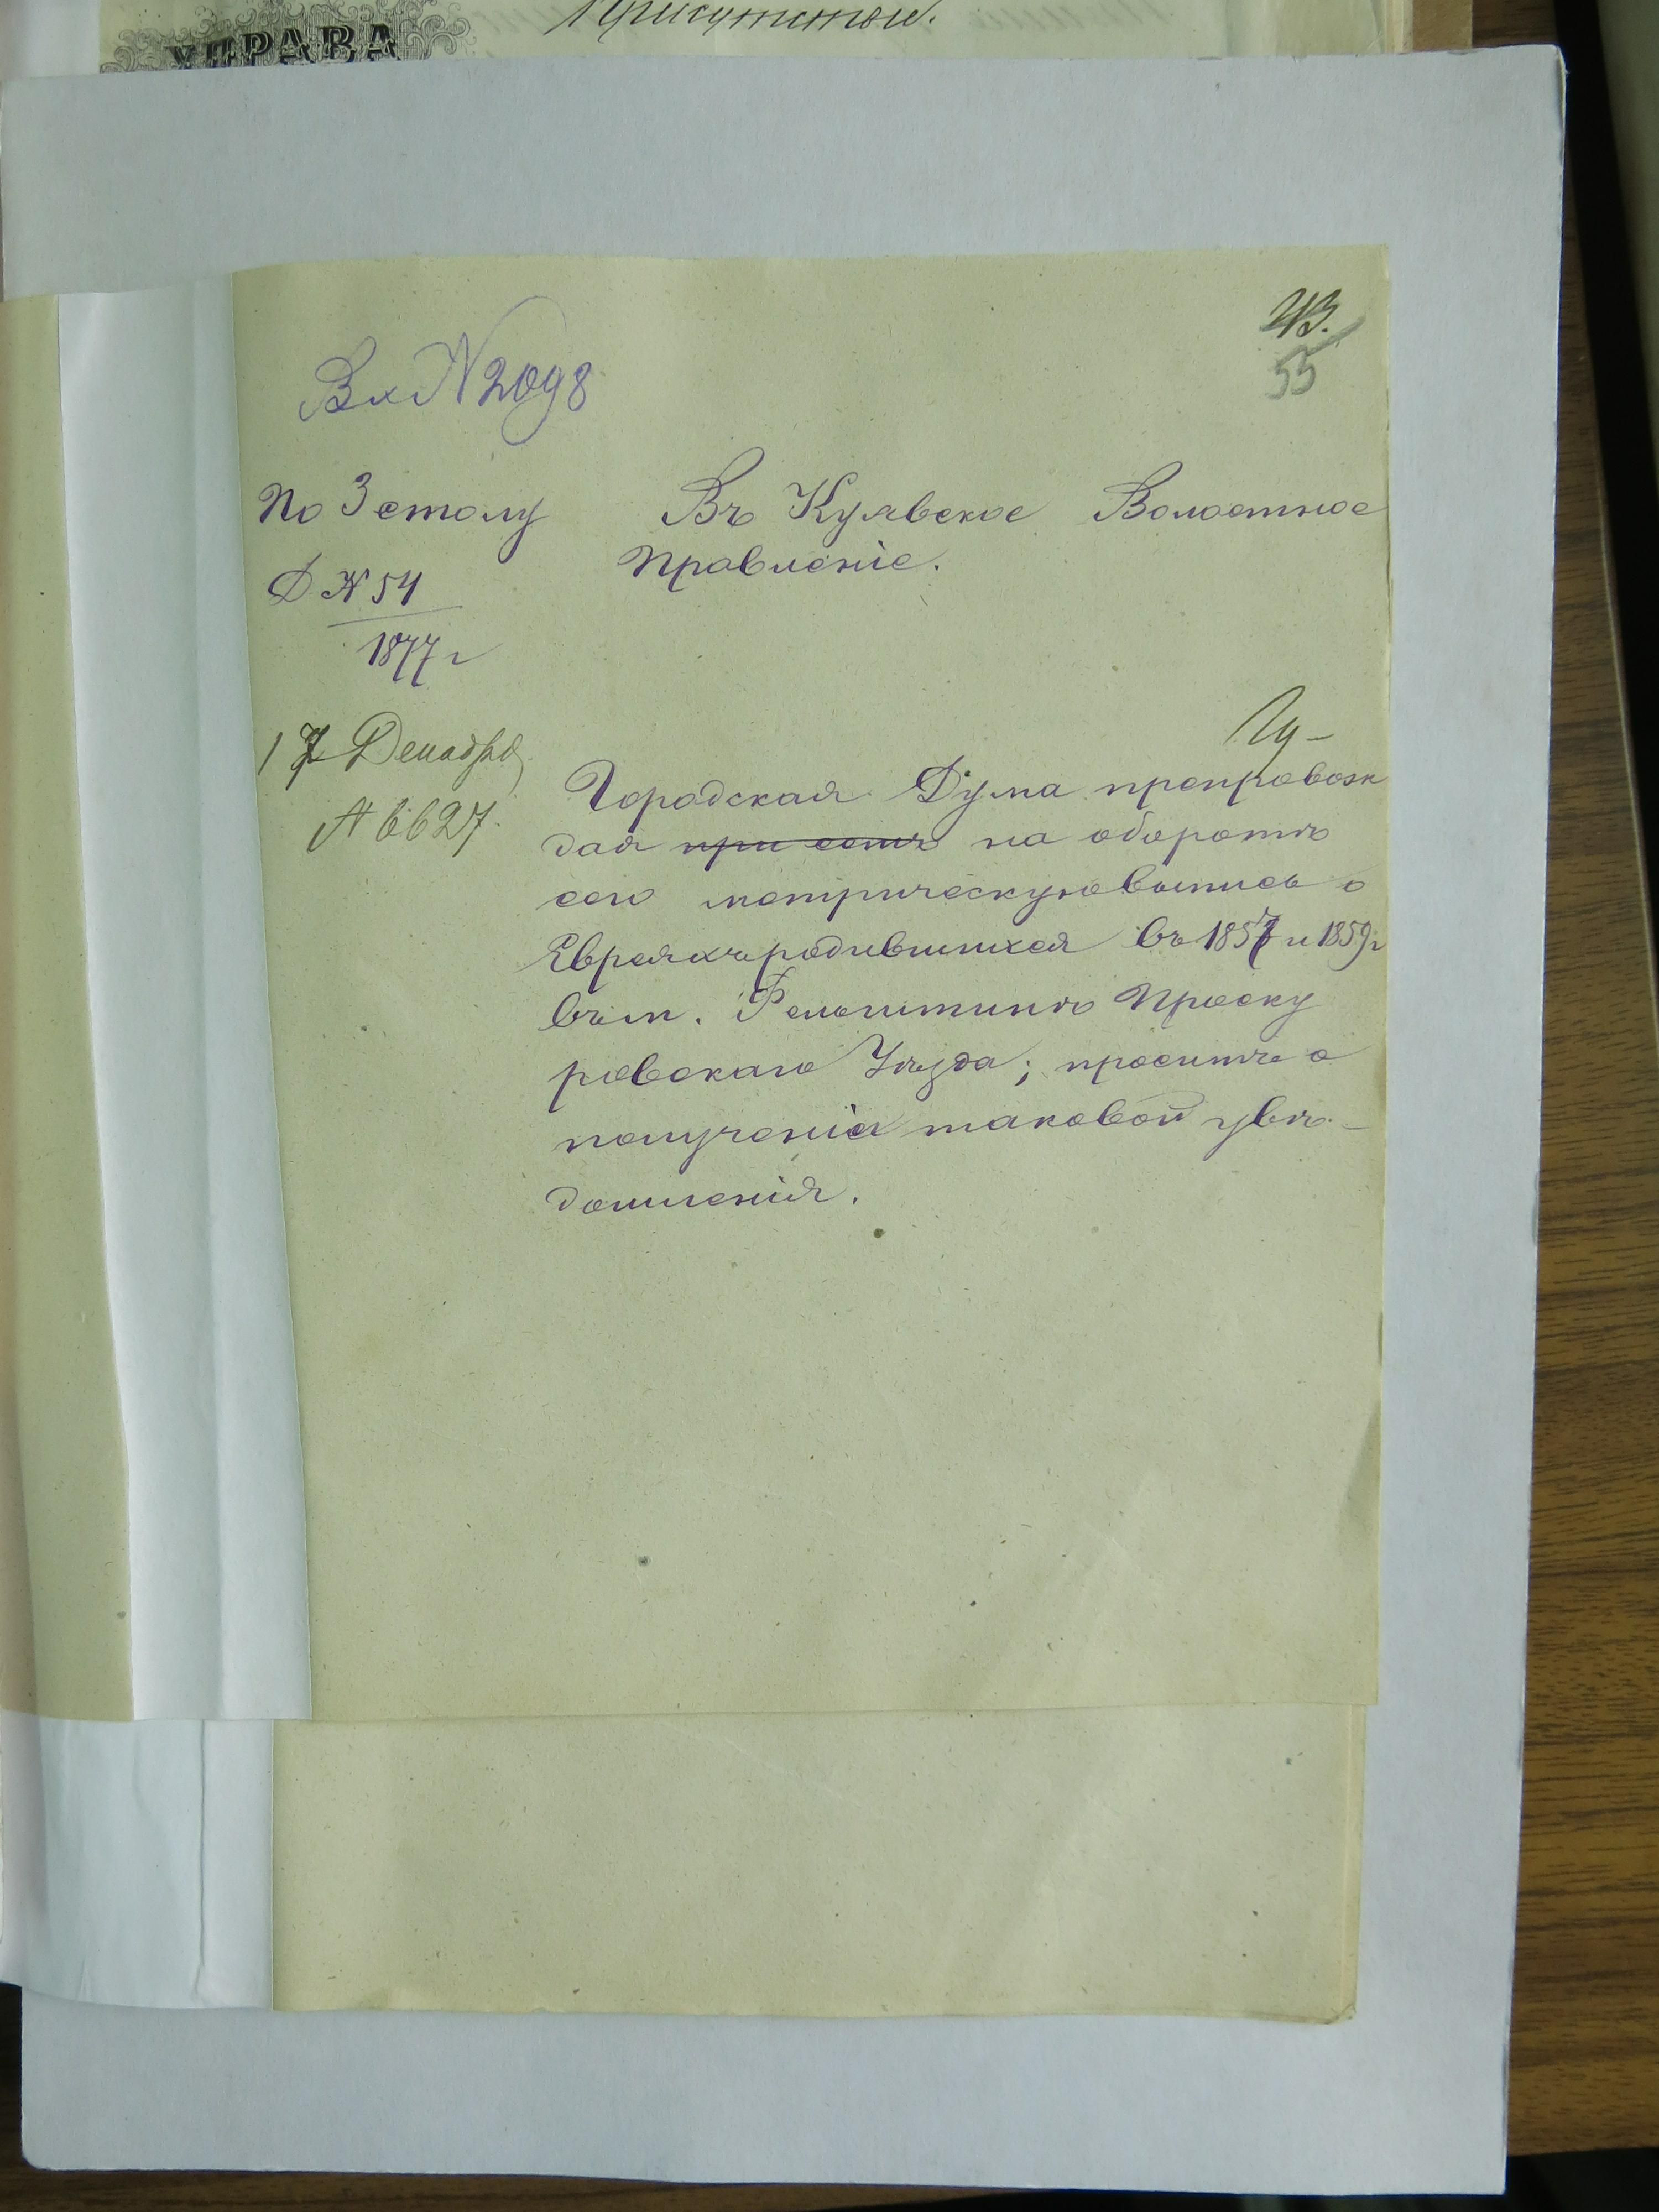 УПРАВА
Присутствіе.
43.
55
Вх N 2098
По 3 столу
Д. № 54
1877 г
17 Декабря
№ 6627.
Въ Кулявское Волостное
Правленіе.
Городская Дума препровож
дая при семъ на оборотѣ
сего метрическую выпись о
Евреяхъ родившихся въ 1857 и 1859 г
въ м. Фельштинѣ Проску
ровскаго Уѣзда; проситъ о
полученіи таковой увѣ-
домленія.